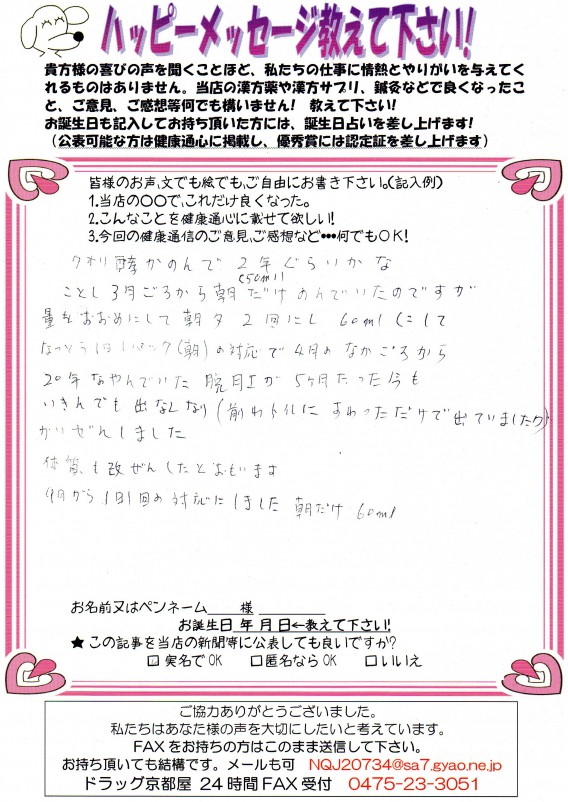 ハッピーメッセージ教えて下さい!
貴方様の喜びの声を聞くことほど、私たちの仕事に情熱とやりがいを与えてく
れるものはありません。当店の漢方薬や漢方サプリ、鍼灸などで良くなったこ
と、ご意見、ご感想等何でも構いません! 教えて下さい!
お誕生日も記入してお持ち頂いた方には、誕生日占いを差し上げます!
(公表可能な方は健康通心に掲載し、優秀賞には認定証を差し上げます)
皆様のお声、文でも絵でも、ご自由にお書き下さい。(記入例)
1.当店の〇〇で、これだけ良くなった。
2.こんなことを健康通心に載せて欲しい!
3.今回の健康通信のご意見、ご感想など・・・何でもOK!
酵かのんで 2年ぐらいかな
(50ml)
ことし3月ごろから朝だけのんでいたのですが
量をおおめにして 朝夕 2回にし 60mlにして
なっとう1日1パック(朝)の対応で4月のなかごろから
20年なやんでいた 脱肛が 5ヶ月たった今も
いきんでも出なくなり(前わトイレに すわっただけで出ていました)
かいぜんしました
体質も改ぜんしたとおもいます
9月から1日1回の対応にしました 朝だけ 60ml
お名前又はペンネーム 様
お誕生日 年 月 日←教えて下さい!
★この記事を当店の新聞等に公表しても良いですか?
□実名でOK □匿名ならOK □いいえ
ご協力ありがとうございました。
私たちはあなた様の声を大切にしたいと考えています。
FAXをお持ちの方はこのまま送信して下さい。
お持ち頂いても結構です。メールも可 NQJ20734@sa7.gyao.ne.jp
ドラッグ京都屋 24時間FAX受付 0475-23-3051